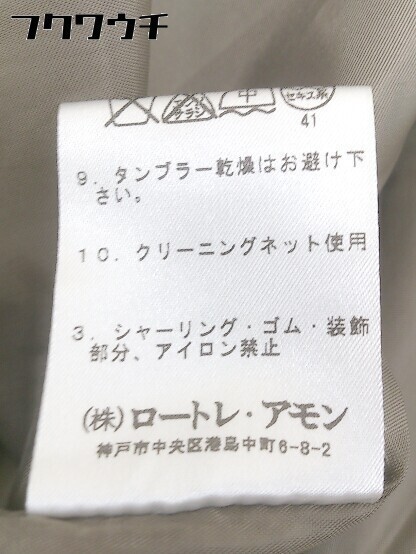 フクワウチ
中
セキユ系
41
9. タンブラー乾燥はお避け下
さい。
10. クリーニングネット使用
3. シャーリング・ゴム・装飾
部分、アイロン禁止
(株)ロートレ・アモン
神戸市中央区港島中町6-8-2